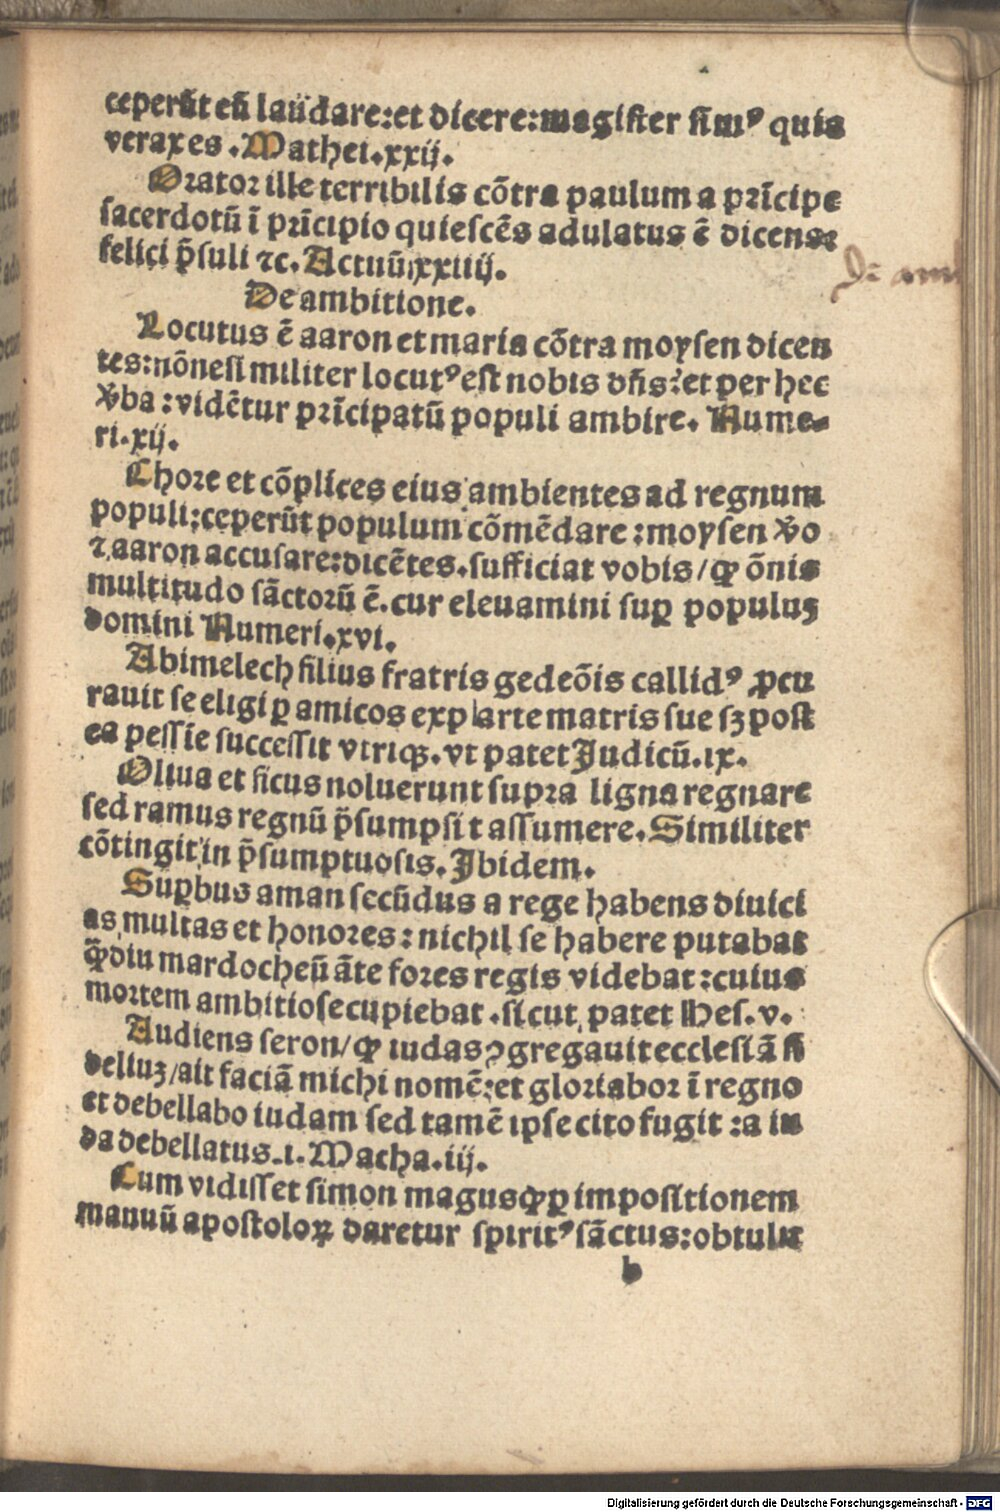 ceperūt eū laudare:et dicere:magister sim⁹ quia
verax es .Mathei.xxij.
Orator ille terribilis cōtra paulum a prīcipe
sacerdotū ī prīcipio quiescēs adulatus ē dicens
felici p̄suli ⁊c. Actuū.xxiiij.
De ambitione.
Locutus ē aaron et maria cōtra moysen dicen
tes:nōne simıliter locut⁹ est nobis dn̄s:et per hec
v̄ba:vidētur prīcipatū populi ambire. Nume-
ri.xij.
Chore et cōplices eius ambientes ad regnum
populi:ceperūt populum cōmēdare:moysen v̄o
⁊ aaron accusare:dicētes.sufficiat vobis/ꝙ ōnis
multitudo sāctorū ē.cur eleuamini suꝑ populuꝫ
domini Numeri.xvi.
Abimelech filius fratris gedeōis callid⁹ ꝓcu
rauit se eligi ꝑ amicos ex parte matris sue sꝫ post
ea pessie successit vtriqꝫ.vt patet Judicū.ix.
Oliua et ficus noluerunt supra ligna regnare
sed ramus regnū p̄sumpsit assumere.Similiter
cōtingit in p̄sumptuosis.Ibidem.
Suꝑbus aman secūdus a rege habens diuici
as multas et honores:nichil se habere putabat
q̄diu mardocheū āte fores regis videbat:cuius
mortem ambitiose cupiebat .sicut patet Hes.v.
Audiens seron/ꝙ iudas ꝯgregauit ecclesiā fi
deliuꝫ/ait faciā michi nomē:et gloriabor ī regno
et debellabo iudam sed tamē ipse cito fugit :a iu
da debellatus.1.Macha.iij.
Cum vidisset simon magus ꝙ ꝑ impositionem
manuū apostoloꝝ daretur spirit⁹ sāctus:obtulit
b
Digitalisierung gefördert durch die Deutsche Forschungsgemeinschaft - DFG